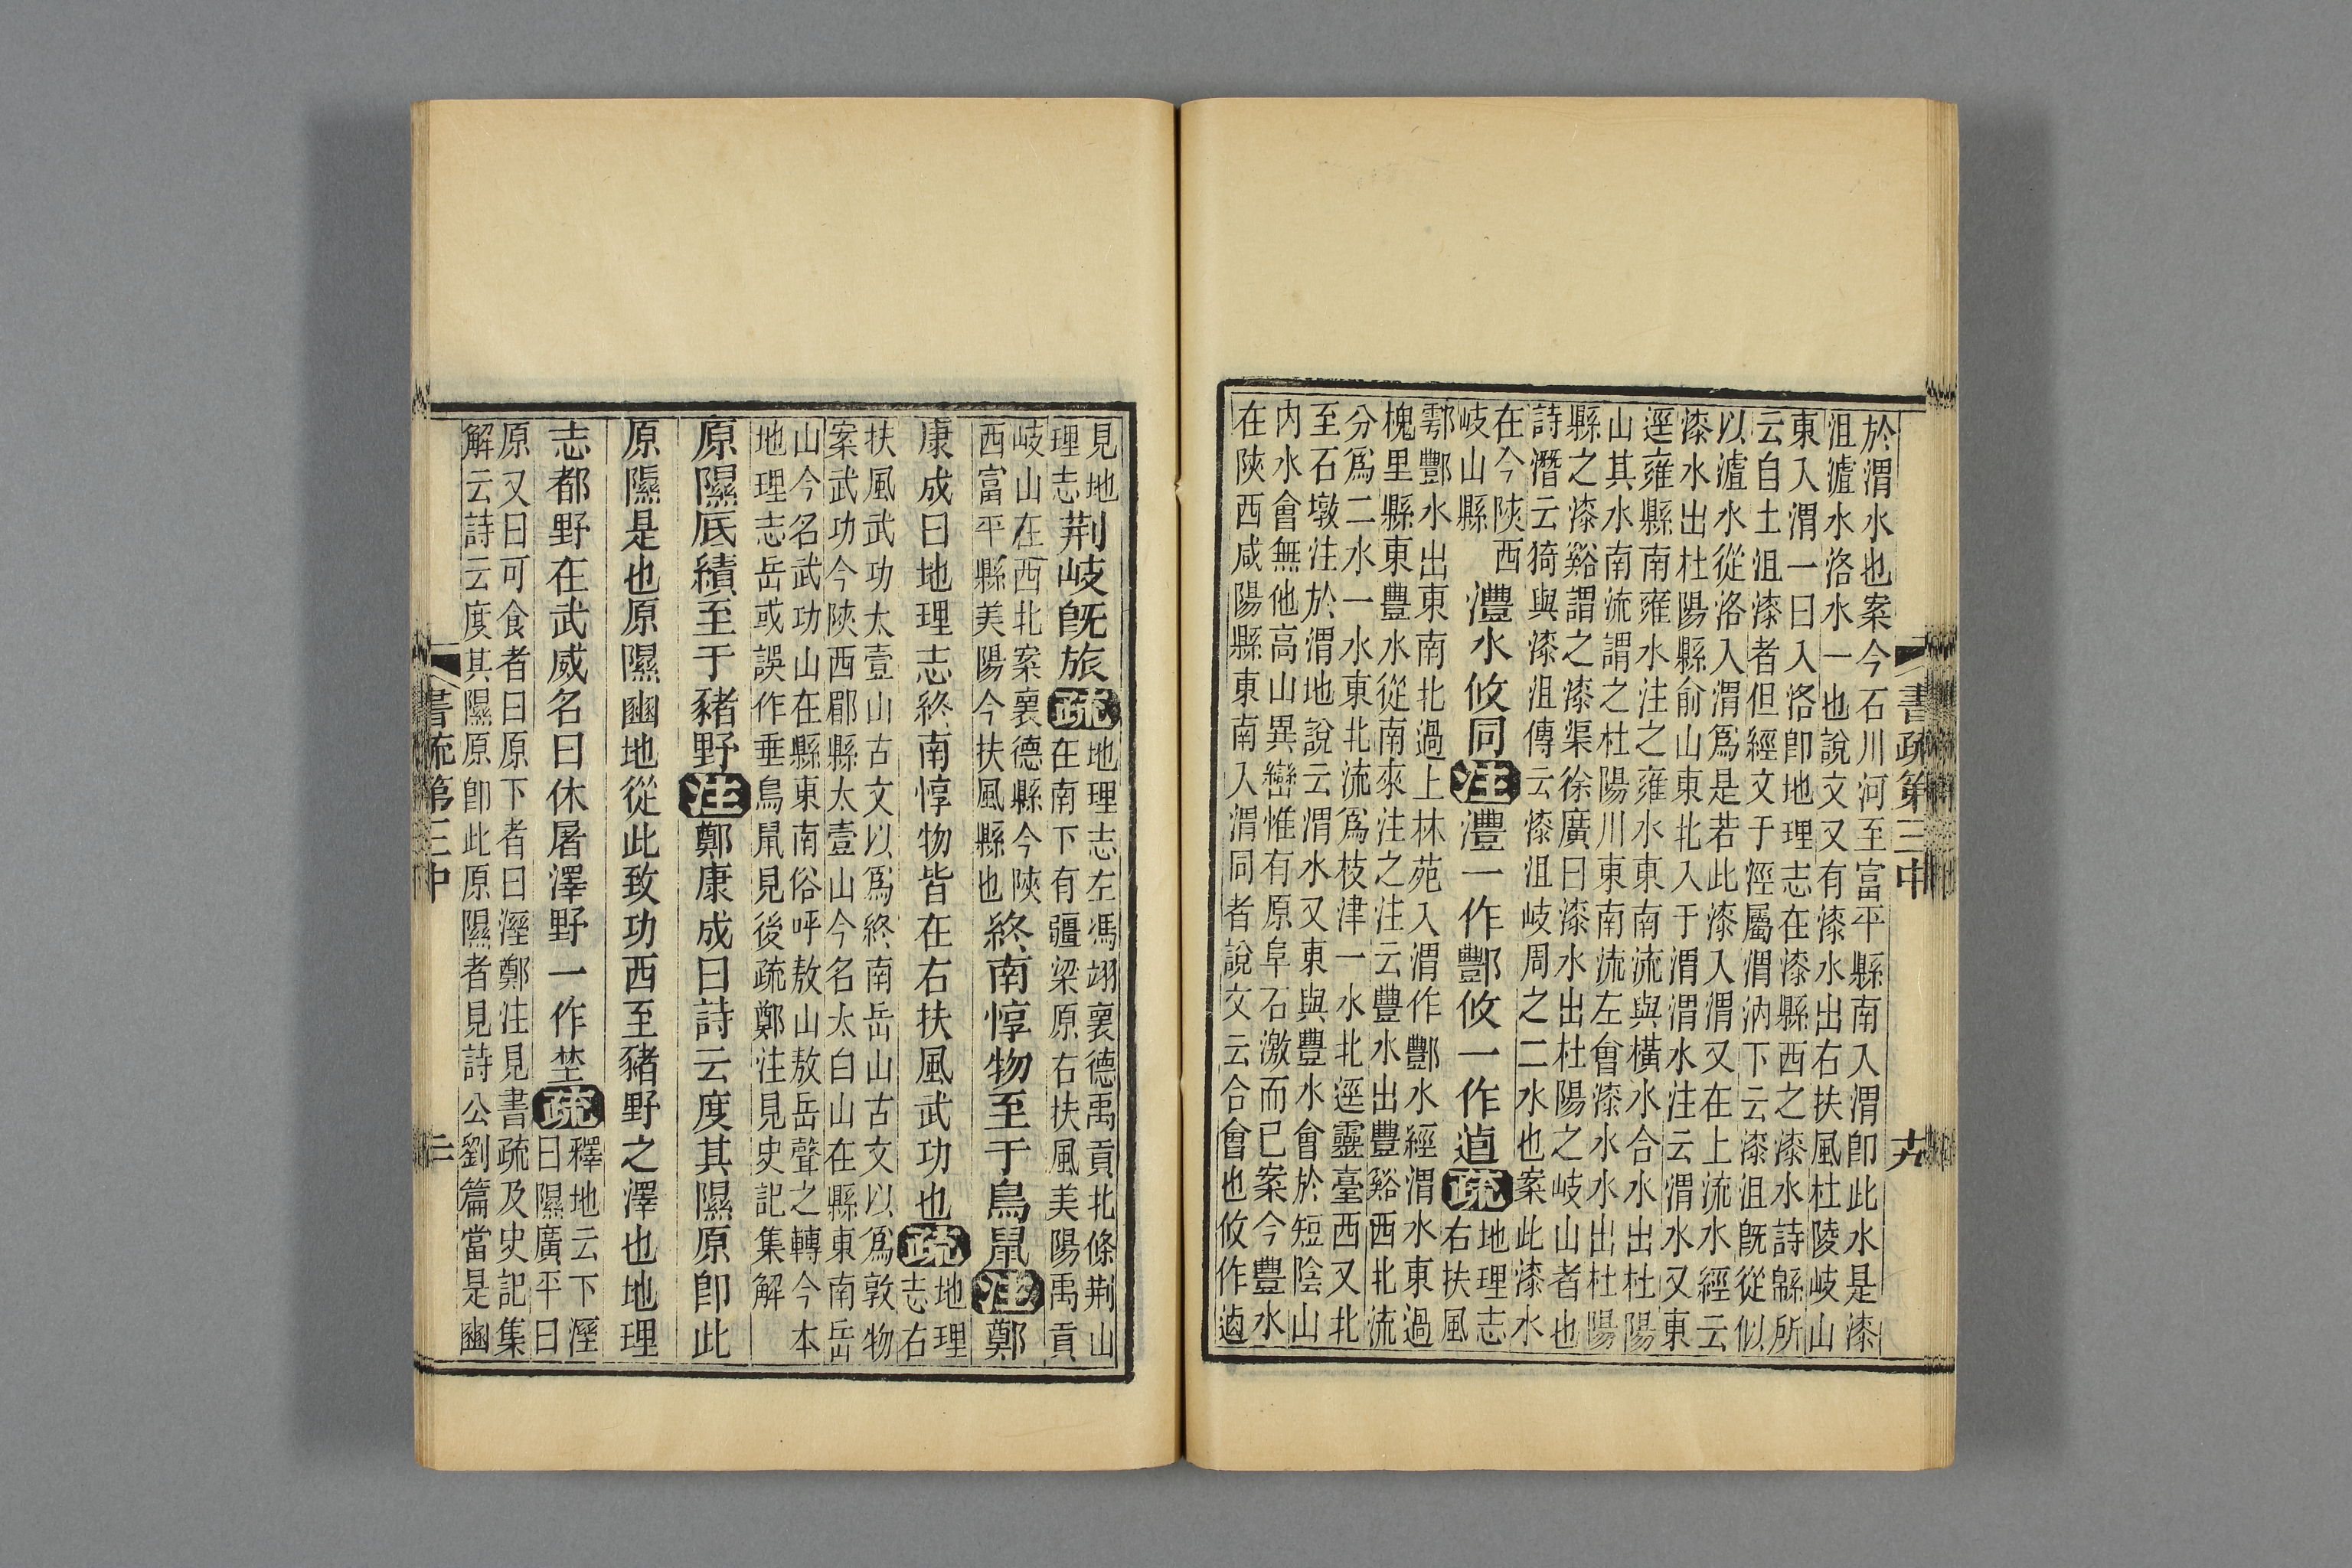 於渭水也案今石川河至富平縣南入渭卽此水是漆
沮瀘水洛水一也說文又有漆水出右扶風杜陵岐山
東入渭一曰入洛卽地理志在漆縣西之漆水詩緜所
云自土沮漆者但經文于涇屬渭汭下云漆沮旣從似
以瀘水從洛入渭爲是若此漆入渭又在上流水經云
漆水出杜陽縣俞山東北入于渭渭水注云渭水又東
逕雍縣南雍水注之雍水東南流與橫水合水出杜陽
山其水南流謂之杜陽川東南流左會漆水水出杜陽
縣之漆谿謂之漆渠徐廣曰漆水出杜陽之岐山者也
詩潛云猗與漆沮傳云漆沮岐周之二水也案此漆水
在今陝西
岐山縣
灃水攸同注灃一作酆攸一作逌疏
地理志
右扶風
鄠酆水出東南北過上林苑入渭作酆水經渭水東過
槐里縣東豐水從南來注之注云豐水出豐谿西北流
分爲二水一水東北流爲枝津一水北逕靈臺西又北
至石墩注於渭地說云渭水又東與豐水會於短陰山
內水會無他高山異巒惟有原阜石激而已案今豐水
在陝西咸陽縣東南入渭同者說文云合會也攸作逌
書疏第三中
九
見地
理志
荆岐旣旅疏
地理志左馮翊襄德禹貢北條荆山
在南下有疆梁原右扶風美陽禹貢
岐山在西北案襄德縣今陝
西富平縣美陽今扶風縣也
終南惇物至于鳥鼠注鄭
康成曰地理志終南惇物皆在右扶風武功也疏
地理
志右
扶風武功太壹山古文以爲終南岳山古文以爲敦物
案武功今陝西郿縣太壹山今名太白山在縣東南岳
山今名武功山在縣東南俗呼敖山敖岳聲之轉今本
地理志岳或誤作垂鳥鼠見後疏鄭注見史記集解
原隰厎績至于豬野注鄭康成曰詩云度其隰原卽此
原隰是也原隰豳地從此致功西至豬野之澤也地理
志都野在武威名曰休屠澤野一作埜疏
釋地云下溼
曰隰廣平曰
原又曰可食者曰原下者曰溼鄭注見書疏及史記集
解云詩云度其隰原卽此原隰者見詩公劉篇當是豳
書疏第三中